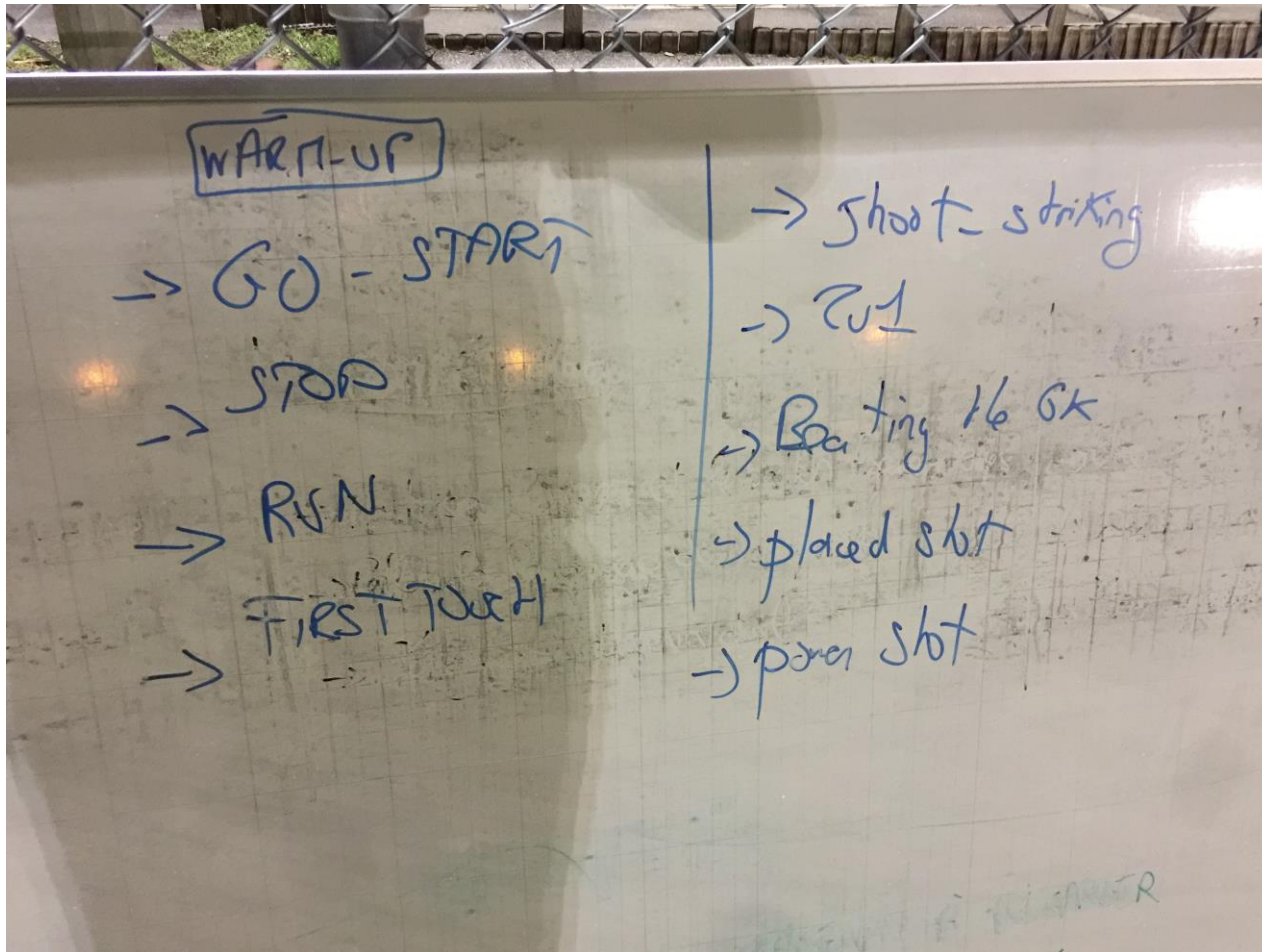 WARM-UP
→ GO - START
→ STOP
→ RUN
→ FIRST TOUCH
→ Shoot - striking
→ 2v1
→ Beating the GK
→ placed shot
→ power shot